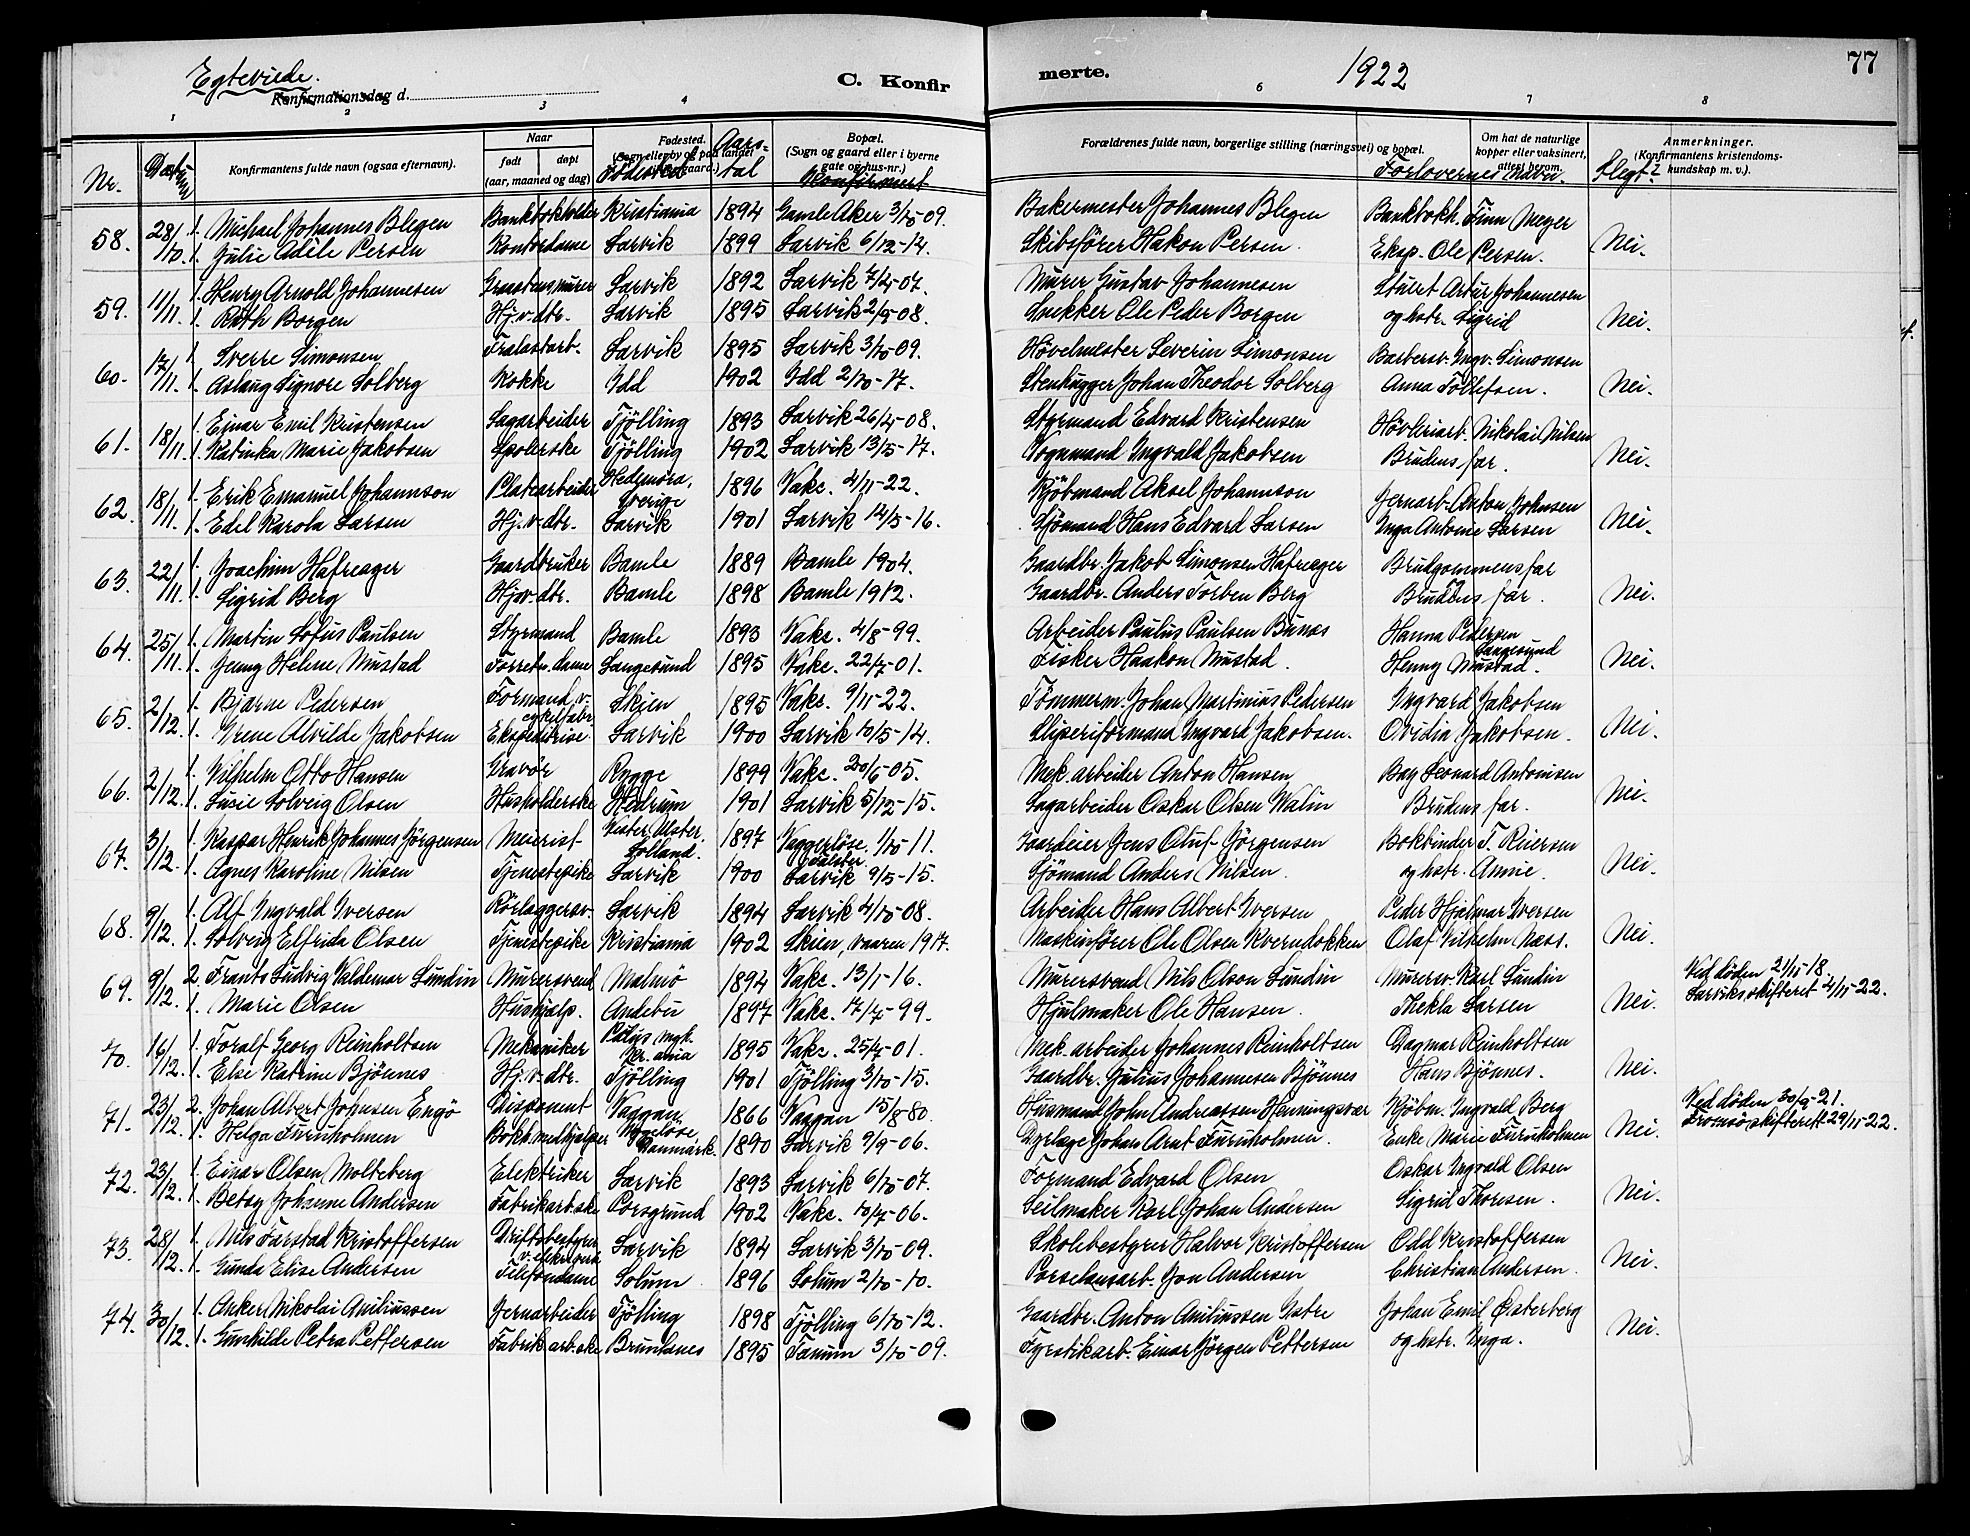 Egteviede. C. Konfir merte. 1922 77
Konfirmationsdag d.
1 2 3 4 6 7 8
Nr. Datum Konfirmantens fulde navn (ogsaa efternavn). Naar født døpt (aar, maaned og dag) Fødested. (Sogn eller by og paa landet gaard.) Fødested Aars-tal Bopæl. (Sogn og gaard eller i byerne gate og hus-nr.) Konfirmert Forældrenes fulde navn, borgerlige stilling (næringsvei) og bopæl. Forlovernes navn. Om hat de naturlige kopper eller vaksinert, attest herom. Slegt? Anmerkninger. (Konfirmantens kristendoms-kundskap m. v.).
58. 28/10. 1. Michael Johannes Blegen Bankbokholder Kristiania 1894 Gamle Aker 3/10-09. Bakermester Johannes Blegen Bankbokh. Finn Meyer
1. Julie Adéle Persen Kontordame Larvik 1899 Larvik 6/12-14. Skibsfører Hakon Persen. Eksp. Ole Persen. Nei.
59. 11/11. 1. Henry Arnold Johannesen Graastensmurer Larvik 1892 Larvik 7/4-07. Murer Gustav Johannesen Stuert Artur Johannesen
1. Ruth Borgen Hj.v.dtr. Larvik 1895 Larvik 2/9-08. Snekker Ole Peder Borgen og hstr. Sigrid Nei.
60. 17/11. 1. Sverre Simonsen Tralastarb. Larvik 1895 Larvik 3/10-09. Høvelmester Severin Simonsen Barbersv. Ingv. Simonsen
1. Aslaug Signore Solberg Kokke Idd 1902 Idd 2/10-17. Stenhugger Johan Theodor Solberg Anna Tollefsen. Nei.
61. 18/11. 1. Einar Emil Kristensen Sagarbeider Tjölling 1893 Larvik 26/4-08. Styrmand Edvard Kristensen Høvleriarb. Nikolai Nilsen
1. Katinka Marie Jakobsen Spolerske Tjölling 1902 Larvik 13/5-17. Vognmand Ingvald Jakobsen Brudens far. Nei.
62. 18/11. 1. Erik Emanuel Johannson Platearbeider Hedemora, Sverige 1896 Vaks. 4/11-22. Kjöbmand Aksel Johannson Jernarb. Anton Johnsen
1. Edel Karola Larsen Hj.v.dtr. Larvik 1901 Larvik 14/5-16. Sjömand Hans Edvard Larsen Inga Antonie Larsen Nei.
63. 22/11. 1. Joachim Hafreager Gaardbruker Bamle 1889 Bamle 1904. Gaardbr. Jakob Simonsen Hafreager Brudgommens far
1. Sigrid Berg Hj.v.dtr. Bamle 1898 Bamle 1912. Gaardbr. Anders Torben Berg Brudens far. Nei.
64. 25/11. 1. Martin Sofus Paulsen Styrmand Bamle 1893 Vaks. 4/8-99. Arbeider Paulus Paulsen Bunes Hanna Pedersen
1. Jenny Helene Mustad Forretn.dame Langesund 1895 Vaks. 22/7-01. Fisker Haakon Mustad. Henny Mustad. Langesund Nei.
65. 2/12. 1. Bjarne Pedersen Formand v. cykelfabr. Skien 1895 Vaks. 9/11-22. Tømmerm. Johan Martinius Pedersen Ingvard Jakobsen
1. Yrene Alvilde Jakobsen Ekspeditrise Larvik 1900 Larvik 10/5-14. Sliperiformand Ingvard Jakobsen. Ovidia Jakobsen. Nei.
66. 2/12. 1. Vilhelm Otto Hansen Gravör Rygge 1899 Vaks. 20/6-05. Mek.arbeider Anton Hansen Bag Leonard Antonisen
1. Susie Solveig Olsen Husholderske Hedrum 1901 Larvik 5/12-15. Sagarbeider Oskar Olsen Walin Brudens far. Nei.
67. 3/12. 1. Kaspar Henrik Johannes Jörgensen Meierist Vester Ulster Lolland. 1897 Vaggerløse, Falster 1/10-11. Gaardeier Jens Oluf Jörgensen Bokbinder T. Reiersen
1. Agnes Karoline Nilsen Tjenestepike Larvik 1900 Larvik 9/5-15. Sjömand Anders Nilsen. og hstr. Annie. Nei.
68. 9/12. 1. Alf Ingvald Iversen Rörlæggersv. Larvik 1894 Larvik 4/10-08. Arbeider Hans Albert Iversen Peder Hjalmar Iversen
1. Solveig Elfrida Olsen Tjenestepike Kristiania 1902 Skien, vaaren 1917. Maskinfører Ole Olsen Kverndokken Olaf Vilhelm Næss. Nei.
69. 9/12. 2. Frants Ludvig Valdemar Lundin Murersvend Malmö 1894 Vaks. 13/1-16. Murersvend Nils Olson Lundin Murersv. Karl Lundin Ved døden 21/11-18.
1. Marie Olsen Hushjælp. Andebu 1897 Vaks. 17/7-99. Hjulmaker Ole Hansen. Thekla Larsen Nei. Larviks skifteret 4/11-22.
70. 16/12. 1. Toralf Georg Reinholtsen Mekaniker Kr.ania 1895 Vaks. 25/7-01. Mek. arbeider Johannes Reinholtsen Dagmar Reinholtsen
1. Else Katrine Bjönnes Hj.v.dtr. Tjölling 1901 Tjölling 3/10-15. Gaardbr. Julius Johannesen Bjönnes Hans Bjönnes. Nei.
71. 23/12. 2. Johan Albert Johnsen Engö Disponent Vaagan 1866 Vaagan 15/8-80. Husmand John Andreassen Henningsvær Kjöbm. Ingvald Berg Ved døden 30/9-21.
1. Helga Furuholmen Bokh.medhjælper Danmark. 1890 Larvik 9/9-06. Dyrlæge Johan Arnt Furuholmen. Enke Marie Furuholmen Nei. Tromsø skifterett 29/11-22.
72. 23/12. 1. Einar Olsen Molteberg Elektriker Larvik 1893 Larvik 6/10-07. Formand Edvard Olsen Oskar Ingvald Olsen
1. Betsy Johanne Andersen Fabrikarb.ske Porsgrund 1902 Vaks. 10/7-06. Seilmaker Karl Johan Andersen Sigrid Thoresen. Nei.
73. 28/12. 1. Nils Farstad Kristoffersen Driftsbestyrer Larvik 1894 Larvik 3/10-09. Skolebestyrer Halvor Kristoffersen Odd Kristoffersen
1. Gunda Elise Andersen Telefondame Solum 1896 Solum 2/10-10. Porselansarb. Jon Andersen Christian Andersen. Nei.
74. 30/12. 1. Anker Nikolai Anthussen Jernarbeider Tjölling 1898 Tjölling 6/10-12. Gaardbr. Anton Johan Emil Østerberg
1. Gunhilde Petra Pettersen Fabrikarb.ske Brunlanes 1895 Tanum 3/10-09. Fyrstikarb. Einar Jörgen Pettersen og hstr. Inga. Nei.